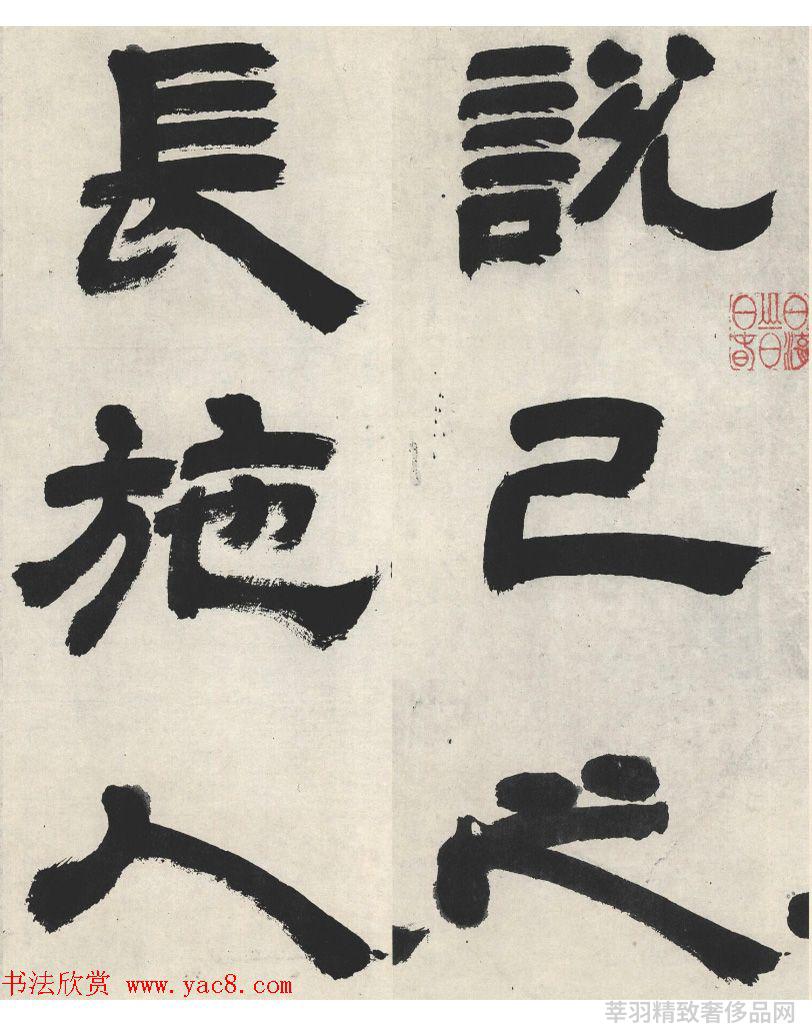 說己之
長施人
书法欣赏 www.yac8.com
莘羽精致奢侈品网